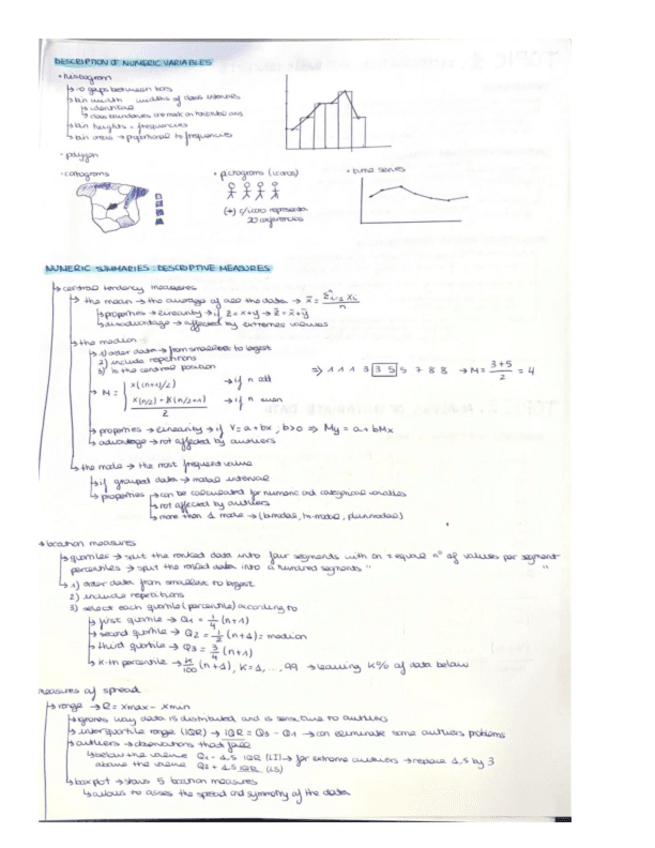 DESCRIPTION OF NUMERIC VARIABLES
• histogram
↳ no gaps between bars
↳ bin width widths of class intervals
↳ identical
↳ class boundaries are mark on horizontal axis
↳ bin heights = frequencies
↳ bin areas → proportional to frequencies
• polygon
• cartograms • pictograms (icons) • time series
(+) c/icono representa
20 conferencias
NUMERIC SUMMARIES: DESCRIPTIVE MEASURES
↳ central tendency measures
↳ the mean → the average of all the data → x̄ = Σⁿᵢ₌₁ xᵢ / n
↳ properties → linearity → if z = x+y → z̄ = x̄ + ȳ
↳ disadvantage → affected by extremes values
↳ the median
↳ 1) order data → from smallest to largest
2) include repetitions
3) is the central position ⇒ 1 1 1 3 3 5 5 7 8 8 → M = 3+5 / 2 = 4
↳ M = { x((n+1)/2) → if n odd
x(n/2) + x(n/2+1) / 2 → if n even
↳ properties → linearity → if Y = a + bx, b>0 ⇒ My = a + bMx
↳ advantage → not affected by outliers
↳ the mode → the most frequent value
↳ if grouped data → modal interval
↳ properties ↳ can be calculated for numeric and categorical variables
↳ not affected by outliers
↳ more than 1 mode → (bimodal, tri-modal, plurimodal)
→ location measures
↳ quartiles → split the ranked data into four segments with an = equal nº of values per segment
percentiles → split the ranked data into a hundred segments " "
↳ 1) order data from smallest to largest
2) include repetitions
3) select each quartile (percentile) according to
↳ first quartile → Q1 = 1/4 (n+1)
↳ second quartile → Q2 = 1/2 (n+1) = median
↳ third quartile → Q3 = 3/4 (n+1)
↳ k-th percentile → K/100 (n+1), K=1, ..., 99 → leaving K% of data below
measures of spread
↳ range → R = xmax - xmin
↳ ignores way data is distributed and is sensitive to outliers
↳ interquartile range (IQR) → IQR = Q3 - Q1 → can eliminate some outliers problems
↳ outliers → observations that fall
↳ below the value Q1 - 1,5 IQR (LI) → for extreme outliers → replace 1,5 by 3
above the value Q3 + 1,5 IQR (LS)
↳ boxplot → shows 5 location measures
↳ allows to asses the spread and symmetry of the data